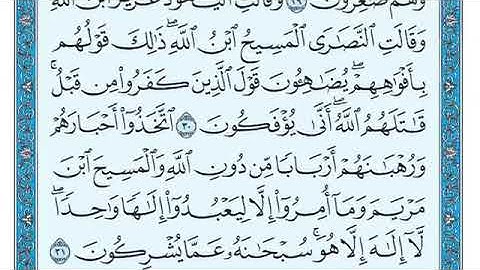 وَهُمْ صَٰغِرُونَ ٢٩ وَقَالَتِ ٱلْيَهُودُ عُزَيْرٌ ٱبْنُ ٱللَّهِ
وَقَالَتِ ٱلنَّصَٰرَى ٱلْمَسِيحُ ٱبْنُ ٱللَّهِۖ ذَٰلِكَ قَوْلُهُم
بِأَفْوَٰهِهِمْۖ يُضَٰهِـُٔونَ قَوْلَ ٱلَّذِينَ كَفَرُوا۟ مِن قَبْلُۚ
قَٰتَلَهُمُ ٱللَّهُۖ أَنَّىٰ يُؤْفَكُونَ ٣٠ ٱتَّخَذُوٓا۟ أَحْبَارَهُمْ
وَرُهْبَٰنَهُمْ أَرْبَابًا مِّن دُونِ ٱللَّهِ وَٱلْمَسِيحَ ٱبْنَ
مَرْيَمَ وَمَآ أُمِرُوٓا۟ إِلَّا لِيَعْبُدُوٓا۟ إِلَٰهًا وَٰحِدًاۖ
لَّآ إِلَٰهَ إِلَّا هُوَۚ سُبْحَٰنَهُۥ عَمَّا يُشْرِكُونَ ٣١